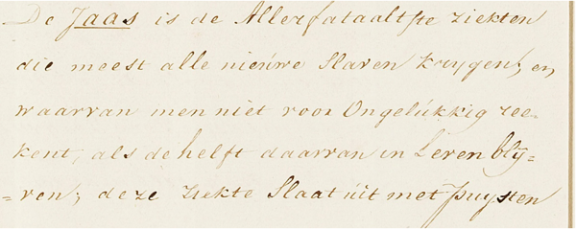 De Jaas is de Allerfataaltste ziekten
die meest alle nieuwe Slaven krygen, en
waarvan men niet voor Ongelukkig ree-
kent, als de helft daarvan in Leven bly=
=ven; deze ziekte Slaat uit met puysten